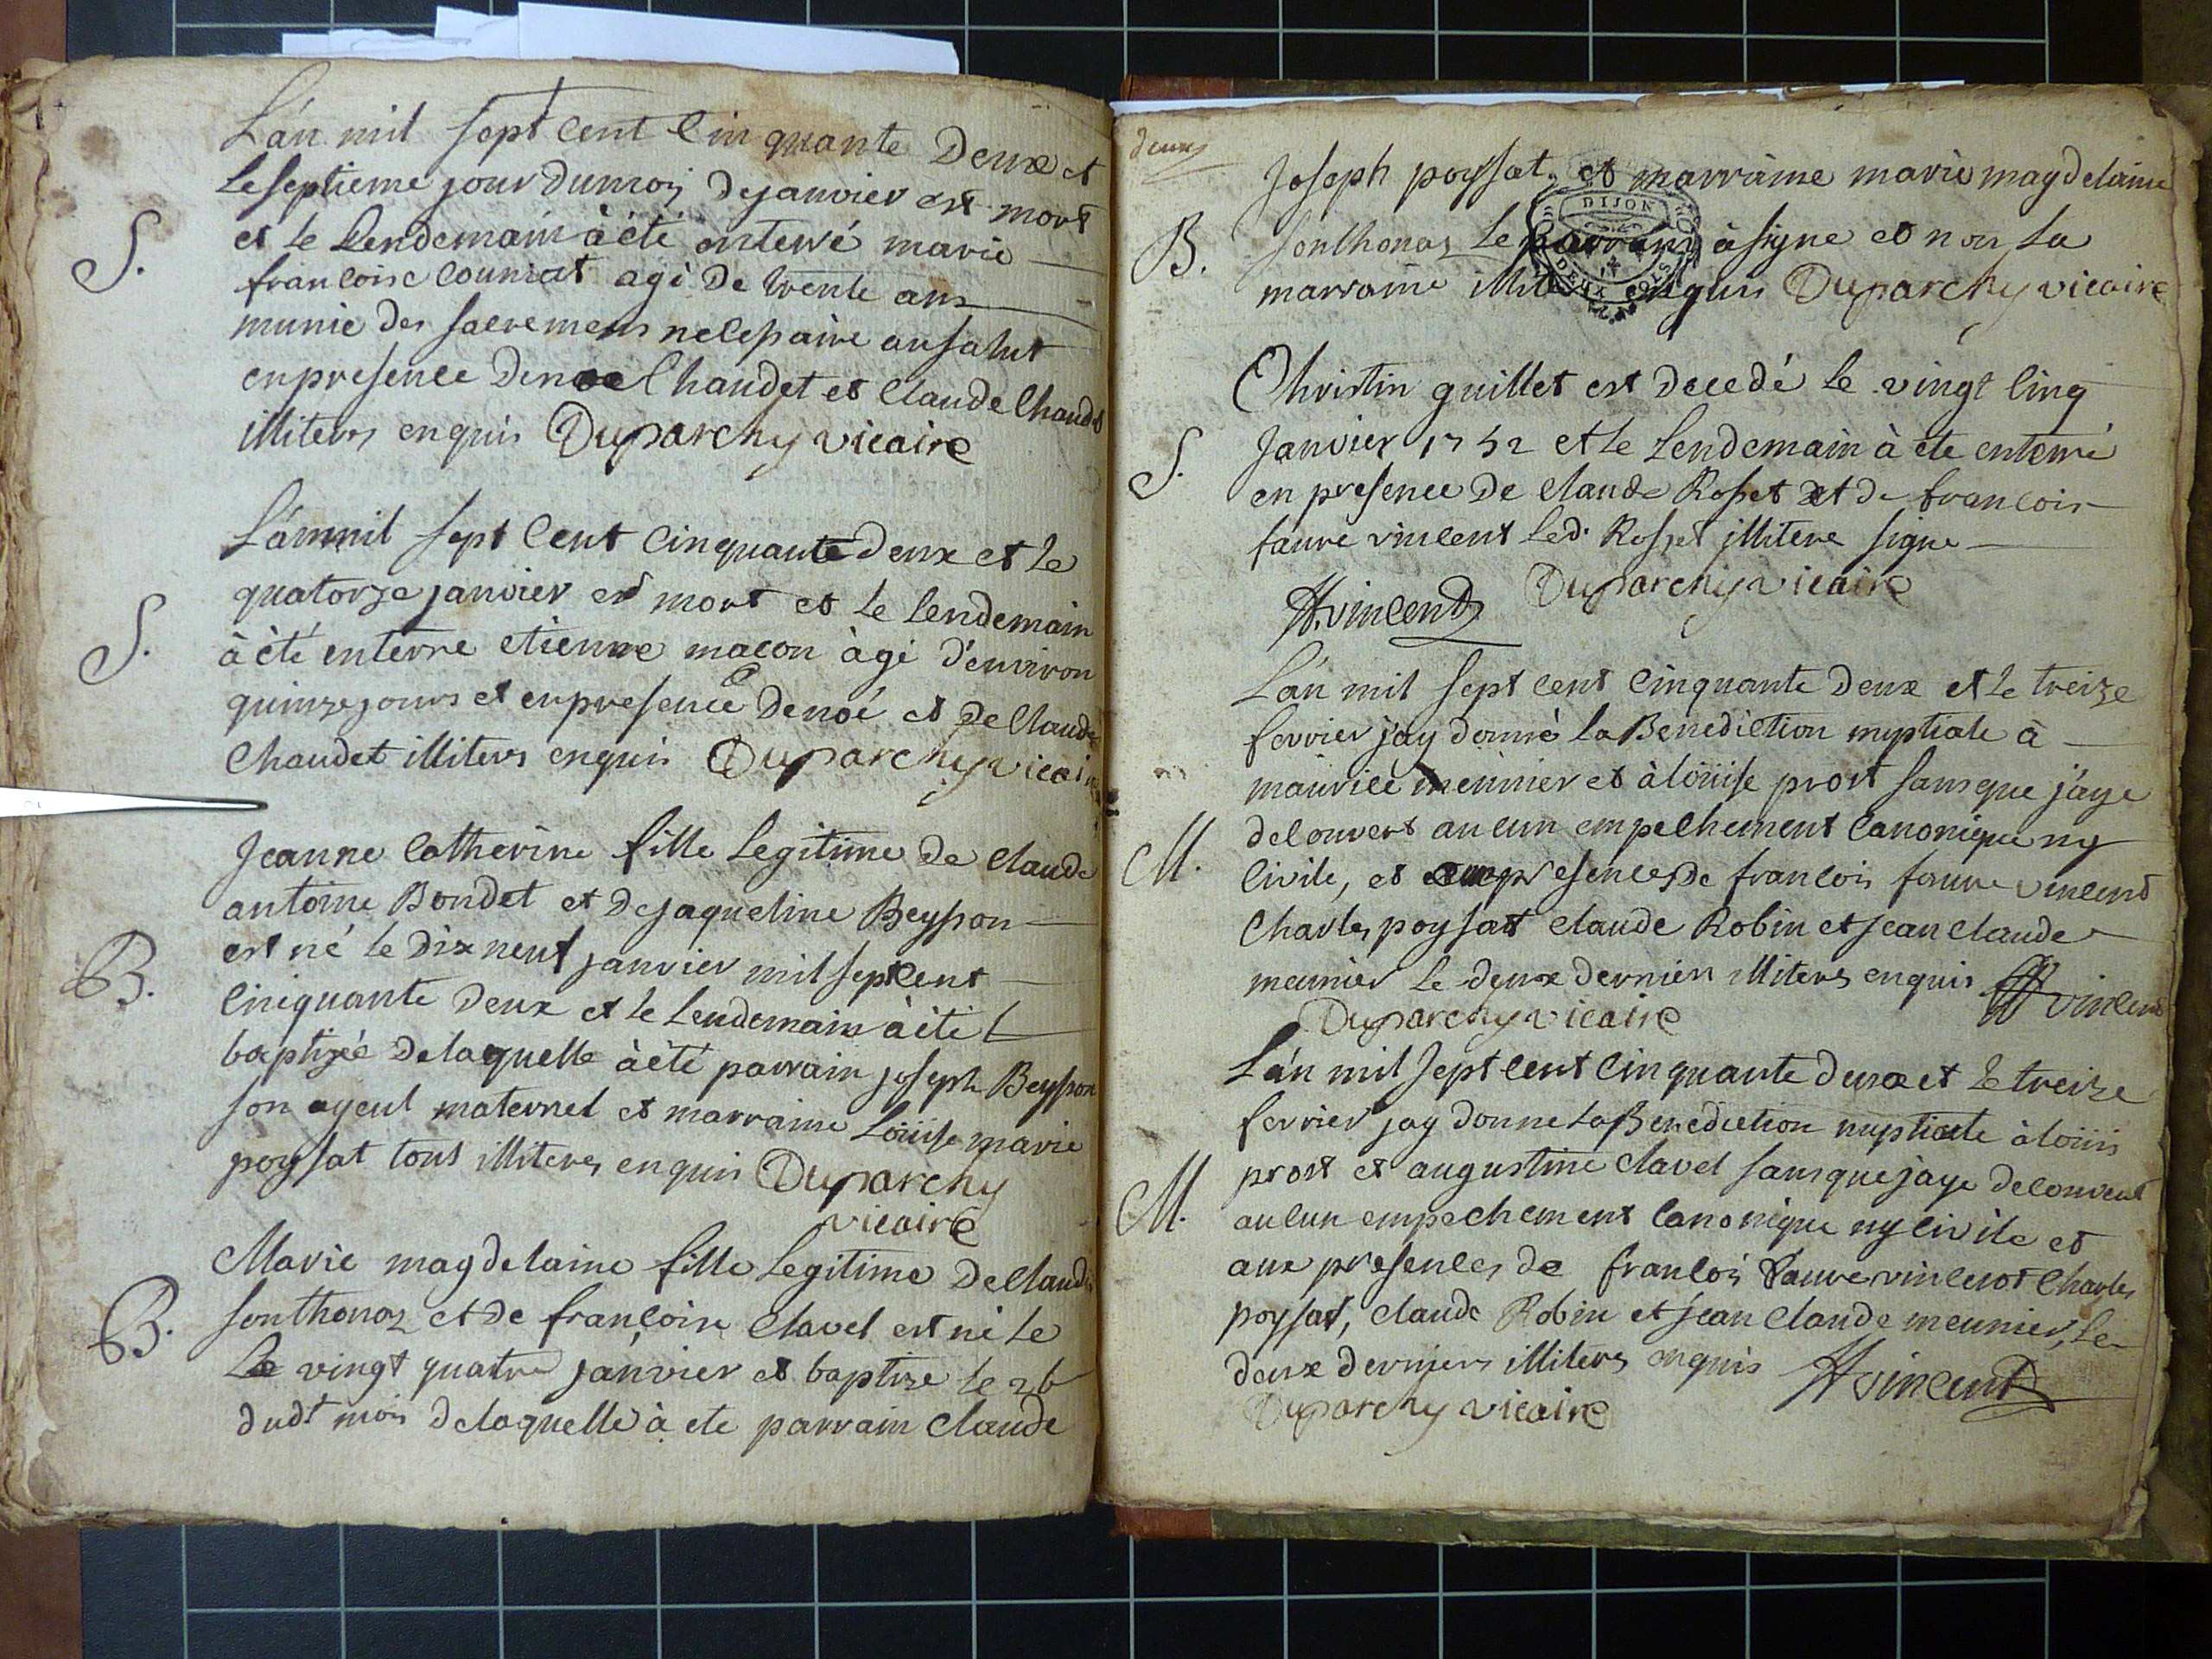 L'an mil sept cent Cinquante Deux et
Le septieme jour du mois de janvier est mort
S.
et le Lendemain à été enterré marie
francoise Couniat agé De trente ans
munie des sacremens necepaire au salut
en presence De noe Chaudet et Claude Chaudet
illiters enquis Duparchy vicaire
L'an mil sept Cent Cinquante deux et le
quatorze janvier est mort et le lendemain
S.
à été enterre etienne macon àgé d'environ
quinze jours et en presence De noé et de Claude
Chaudet illiters enquis Duparchy vicaire
Jeanne Catherine fille Legitime de Claude
antoine Bondet et de jaqueline Beysson
B.
est né le Dix neuf janvier mil sept cent
Cinquante Deux et le Lendemain à été
baptizée de laquelle à été parrain joseph Beysson
son ayeul maternel et marraine Loüise marie
poysat tous illiteres enquis Duparchy
vicaire
Marie magdelaine fille Legitime De Claude
B.
sonthonaz et de francoise Clavel est né le
Le vingt quatre janvier et baptize le 26
dudt mois de laquelle à ete parrain Claude
deux
Joseph poysat, et marraine marie magdelaine
DIJON
B.
sonthonaz Le parrain à signe et non La
DEUX SOLS
marraine enquis Duparchy vicaire
Christin guillet est decedé le vingt Cinq
S.
Janvier 1752 et le Lendemain à ete enterré
en presence De Claude Rosset et de francois
faure vincent led. Rosset illitere signe
f f vincent Duparchy vicaire
L'an mil sept cent Cinquante deux et le treize
fevrier j'ay donné la Benediction nuptiale à
maurice meunier et à loüise prost sans que j'aye
M.
decouvert aucun empechement Canonique ny
Civile, et presences de francois faure vincent
Charles poysat Claude Robin et jean Claude
meunier le deux derniers illiters enquis f f vincent
Duparchy vicaire
L'an mil sept cent Cinquante deux et le treize
fevrier jay donne la Benediction nuptiale à loüis
prost et augustine Clavel sans que jaye decouvert
M.
aucun empechement Canonique ny civile et
aux presences de francois faure vincent Charles
poysat, Claude Robin et jean Claude meunier, le
deux derniers illiters enquis f f vincent
Duparchy vicaire